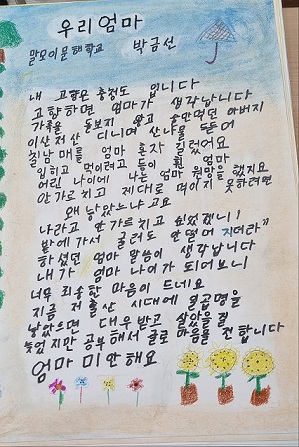 우리엄마
말모이문해학교 박금선
내 고향은 충청도 입니다
고향하면 엄마가 생각납니다
가족을 돌보지 않고 술만먹던 아버지
이산저산 디니며 산나물 뜯어
칠남매를 엄마 혼자 길렀어요
입히고 먹이려고 등이 휜 엄마
어린 나이에 나는 엄마 원망을 했지요
안가르치고 제대로 먹이지 못하려면
왜 낳았느냐고요
나라고 안가르치고 싶었겠니!
밭에가서 굴러도 안떨어 지더라"
하셨던 엄마 말씀이 생각납니다
내가 엄마 나이가 되어보니
너무 죄송한 마음이 드네요
지금 저출산 시대에 일곱명을
낳았으면 대우받고 살았을걸
늦었지만 공부해서 글로 마음을 전합니다
엄마 미안해요